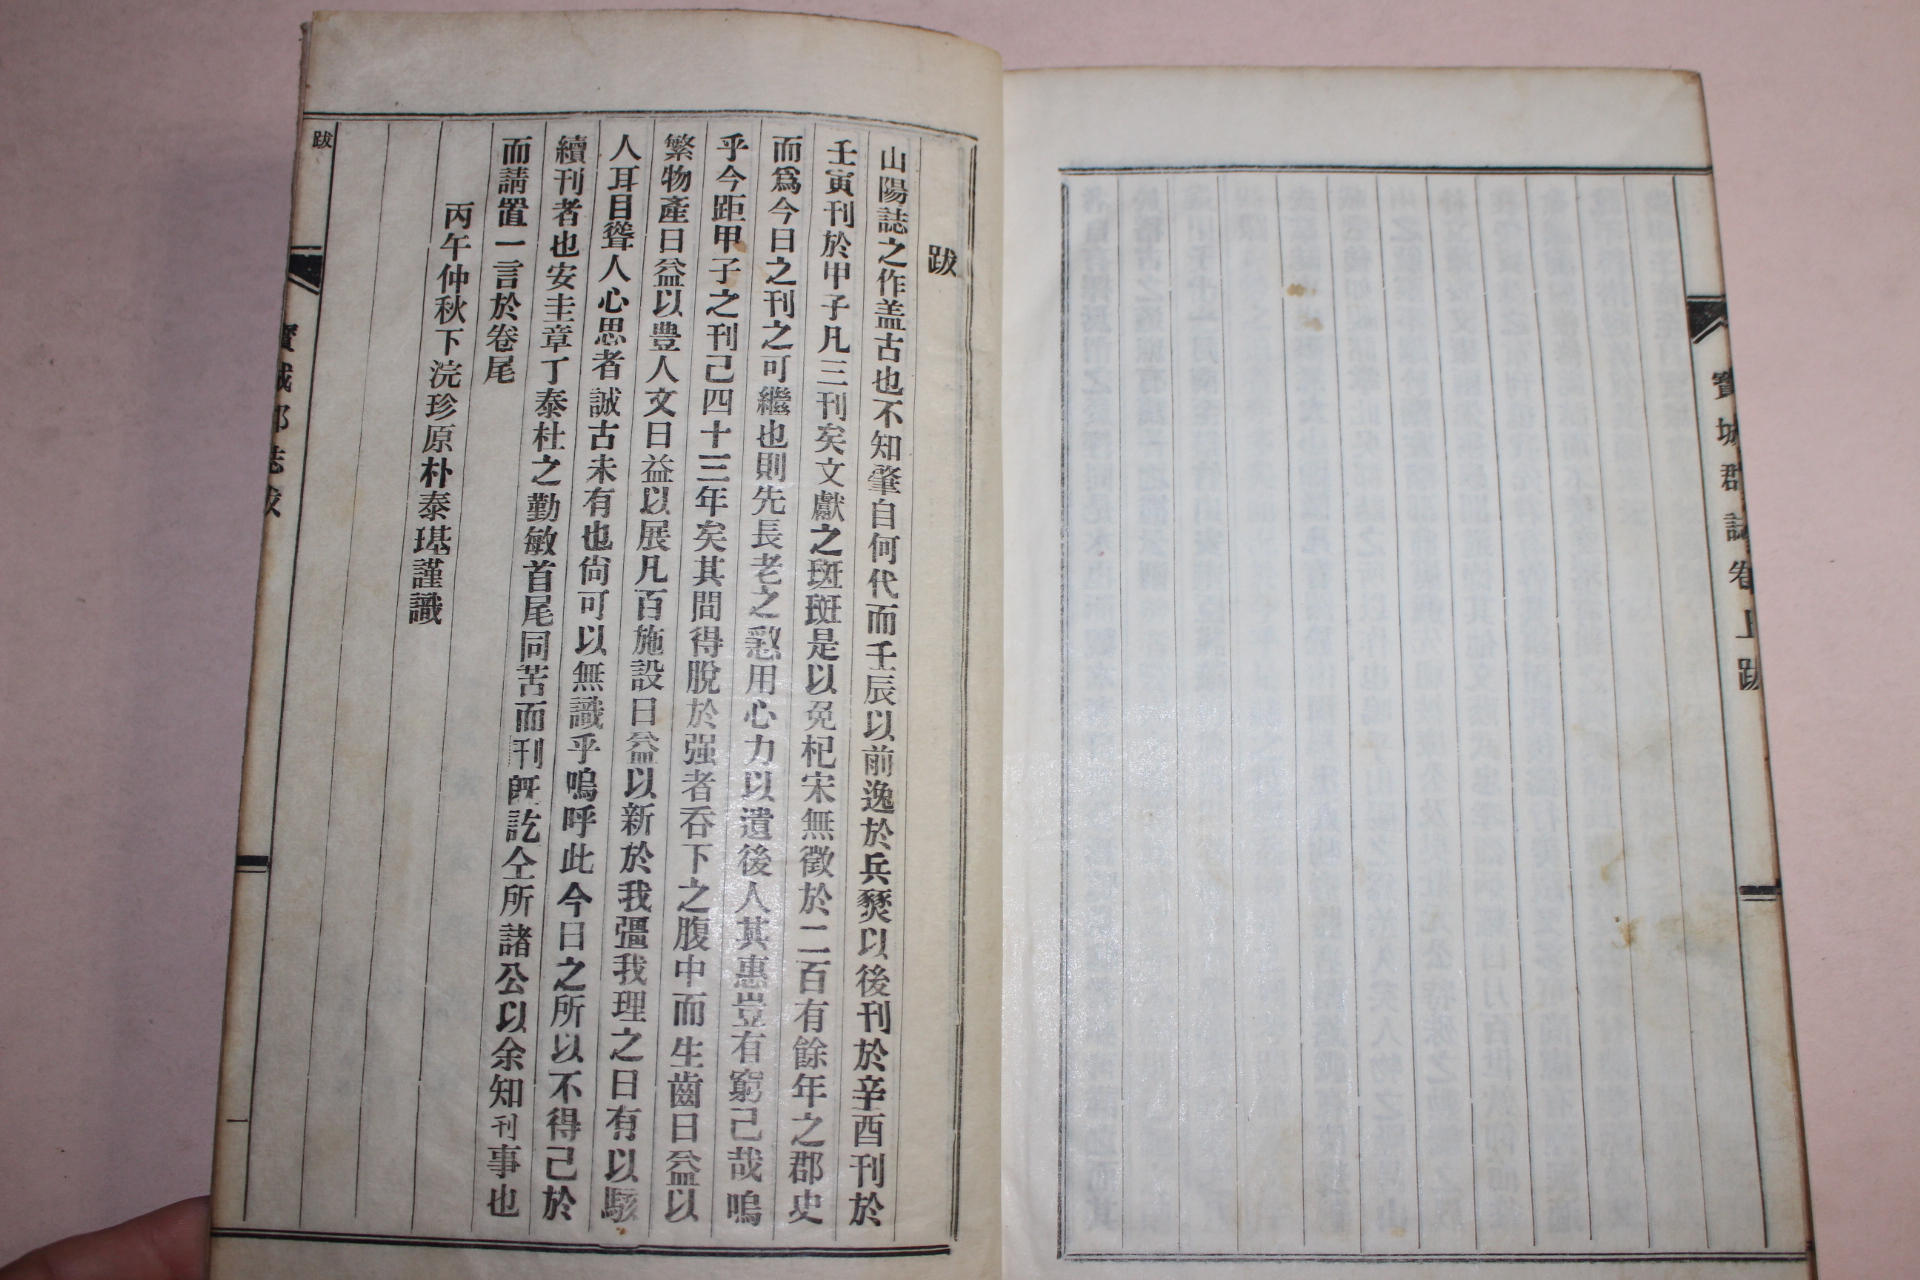 寶城郡誌卷上跋
跋
山陽誌之作盖古也不知肇自何代而壬辰以前逸於兵燹以後刊於辛酉刊於
壬寅刊於甲子凡三刊矣文獻之斑斑是以免杞宋無徵於二百有餘年之郡史
而爲今日之刊之可繼也則先長老之慇用心力以遺後人其惠豈有窮己哉嗚
乎今距甲子之刊己四十三年矣其間得脫於强者呑下之腹中而生齒日益以
繁物產日益以豊人文日益以展凡百施設日益以新於我彊我理之日有以駭
人耳目聳人心思者誠古未有也尙可以無識乎嗚呼此今日之所以不得己於
續刊者也安圭章丁泰杜之勤敏首尾同苦而刊旣訖仝所諸公以余知刊事也
而請置一言於卷尾
丙午仲秋下浣珍原朴泰㻑謹識
跋
寶城郡誌跋
一